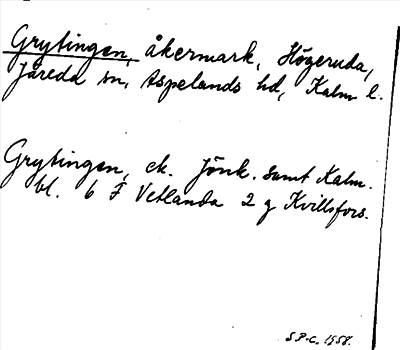 Grytingen, åkermark, Högeruda,
Järeda sn, Aspelands hd, Kalm l.
Grytingen, ek. Jönk. samt Kalm.
bl. 6 F Vetlanda 2 g Kvillsfors.
S.P-C. 1958.